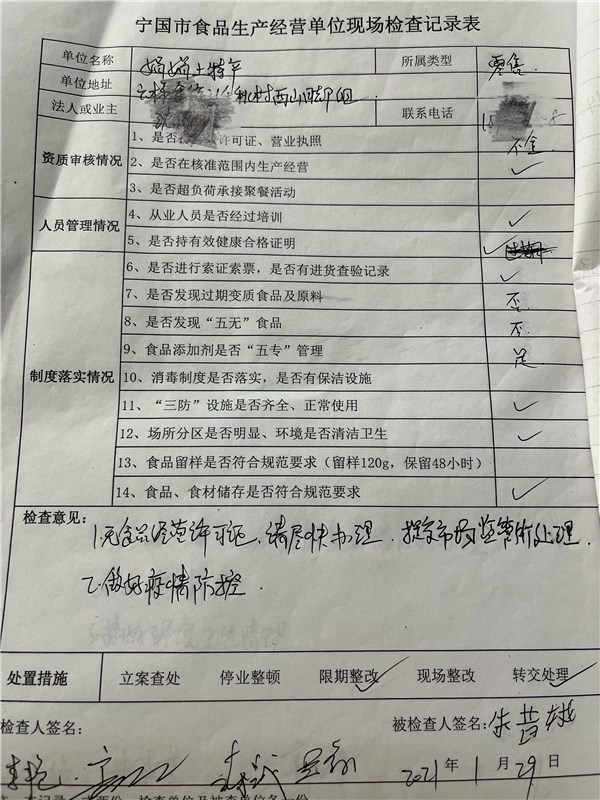 宁国市食品生产经营单位现场检查记录表
单位名称 娟娟土特产 所属类型 零售
单位地址 村西山脚组
法人或业主 联系电话
资质审核情况 1、是否 许可证、营业执照 不全
2、是否在核准范围内生产经营 ✓
3、是否超负荷承接聚餐活动
人员管理情况 4、从业人员是否经过培训 ✓
5、是否持有效健康合格证明 ✓
制度落实情况 6、是否进行索证索票，是否有进货查验记录 ✓
7、是否发现过期变质食品及原料 否
8、是否发现“五无”食品 否
9、食品添加剂是否“五专”管理 是
10、消毒制度是否落实，是否有保洁设施
11、“三防”设施是否齐全、正常使用 ✓
12、场所分区是否明显、环境是否清洁卫生 ✓
13、食品留样是否符合规范要求（留样120g，保留48小时）
14、食品、食材储存是否符合规范要求 ✓
检查意见：
1.无食品经营许可证，请尽快办理，提交市场监管所处理
2.做好疫情防控.
处置措施 立案查处 停业整顿 限期整改 ✓ 现场整改 转交处理 ✓
检查人签名： 被检查人签名：朱
2021年1月29日